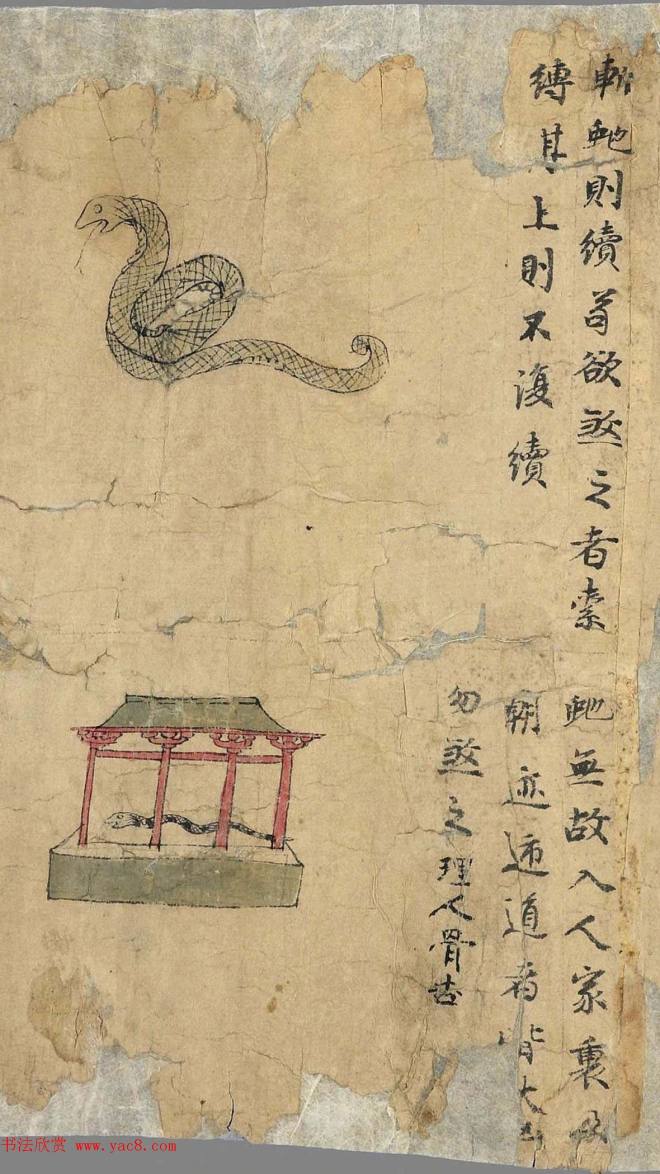 斬虵則續苟欲煞之者索
縛其上則不復續
虵無故入人家裏及
朝道者皆大凶
勿煞之理人骨吉
书法欣赏 www.yac8.com